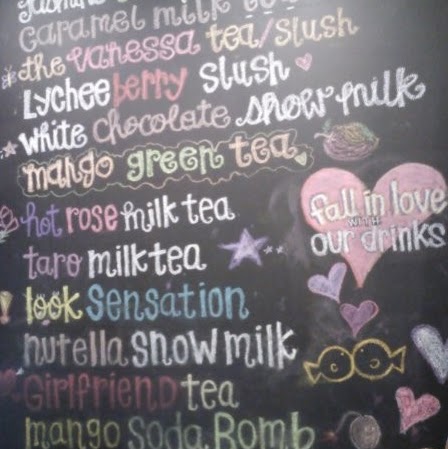 Jasmine
caramel milk tea
the vanessa tea/slush
Lychee berry slush
white chocolate snow milk
mango green tea
hot rose milk tea
taro milk tea
look sensation
nutella snow milk
Girlfriend tea
mango Soda Bomb
fall in love
WITH
our drinks